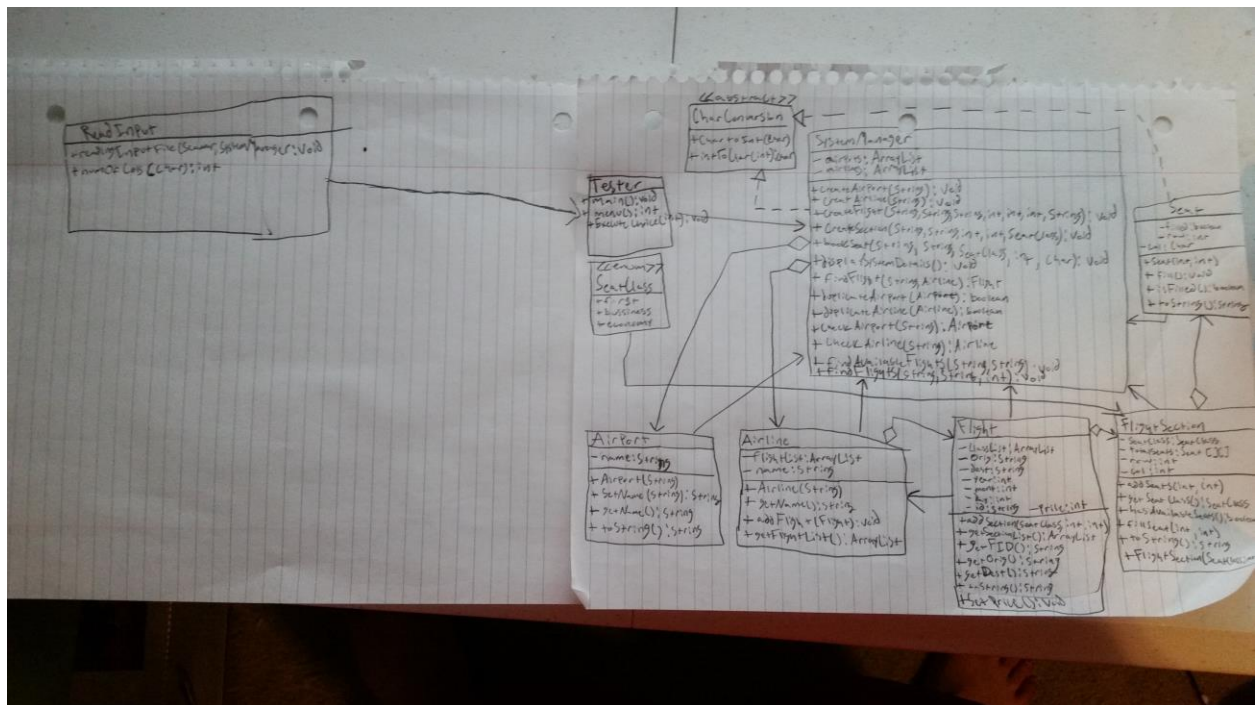 ReadInput
+readingInputFile(Scanner, SystemManager): void
+numOfCols(char): int
<<abstract>>
CharConversion
+CharToInt(char)
+intToChar(int):char
Tester
+main():void
+menu(): int
+executeChoice(int): void
<<enum>>
SeatClass
+first
+bussiness
+economy
SystemManager
- airports: ArrayList
- airlines: ArrayList
+createAirport(String): void
+createAirline(String): void
+createFlight(String, String, String, int, int, int, String): void
+ createSection(String, String, int, int, SeatClass): void
+bookSeat(String, String, SeatClass, int, char): void
+displaySystemDetails(): void
+ findFlight(String, Airline): Flight
+duplicateAirport(Airport): boolean
+duplicateAirline(Airline): boolean
+ checkAirport(String): Airport
+ checkAirline(String): Airline
+ findAvailableFlights(String, String): void
+findFlights(String, String, int): void
Seat
-filled: boolean
-row: int
-col: char
+Seat(int, int)
+ fill(): void
+isFilled(): boolean
+toString(): String
Airport
-name: String
+ Airport(String)
+ setName(String): String
+ getName(): String
+ toString(): String
Airline
-flightList: ArrayList
-name: String
+Airline(String)
+ getName(): String
+ addFlight(Flight): void
+getFlightList(): ArrayList
Flight
-classList: ArrayList
- Orig: String
- Dest: String
-year: int
-mont: int
-day: int
-id: String -price: int
+addSection(SeatClass, int, int)
+getSectionList(): ArrayList
+ getFID(): String
+getOrig(): String
+getDest(): String
+toString(): String
+SetPrice(): void
FlightSection
-SeatClass: SeatClass
-totalSeats: Seat [][]
-row: int
-col: int
+addSeats(int, int)
+getSeatClass(): SeatClass
+ hasAvailableSeats(): boolean
+ fillSeat(int, int)
+toString(): String
+FlightSection(SeatClass